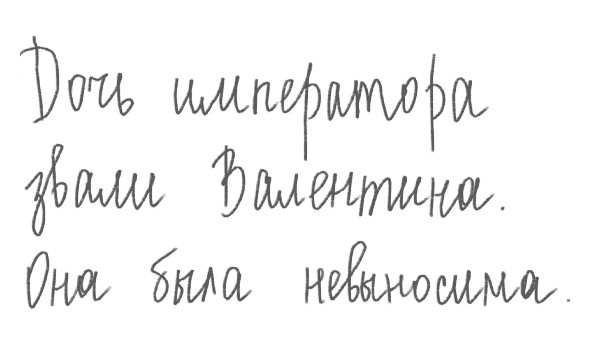 Дочь императора
звали Валентина.
Она была невыносима.